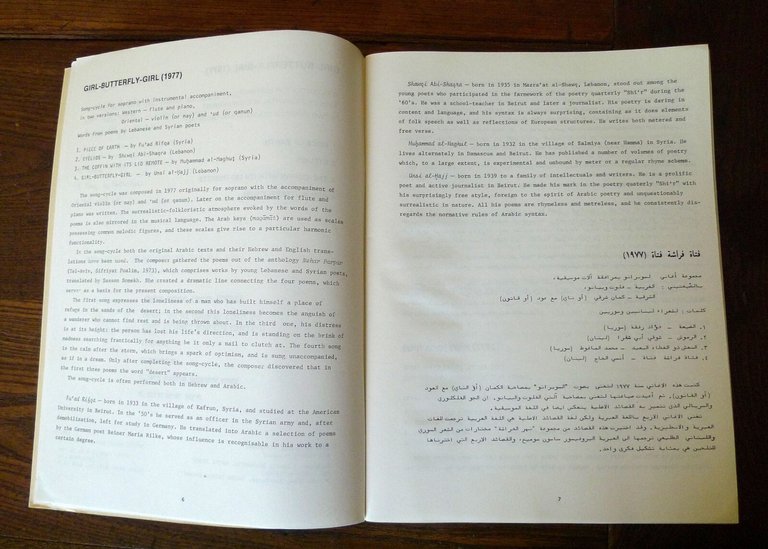 GIRL-BUTTERFLY-GIRL (1977)
Song-cycle for soprano with instrumental accompaniment,
in two versions: Western — flute and piano,
Oriental — violin (or nay) and 'ud (or qanun).
Words from poems by Lebanese and Syrian poets
1. PIECE OF EARTH — by Fu'ad Rifqa (Syria)
2. EYELIDS — by Shawqi Abi-Shaqra (Lebanon)
3. THE COFFIN WITH ITS LID REMOTE — by Muḥammad al-Maghut (Syria)
4. GIRL-BUTTERFLY-GIRL — by Unsi al-Ḥajj (Lebanon)
The song-cycle was composed in 1977 originally for soprano with the accompaniment of
Oriental violin (or nay) and 'ud (or qanun). Later on the accompaniment for flute and
piano was written. The surrealistic-folkloristic atmosphere evoked by the words of the
poems is also mirrored in the musical language. The Arab keys (maqāmāt) are used as scales
possessing common melodic figures, and these scales give rise to a particular harmonic
functionality.
In the song-cycle both the original Arabic texts and their Hebrew and English trans-
lations have been used. The composer gathered the poems out of the anthology Nehar Parpar
(Tel-Aviv, Sifriyat Poalim, 1973), which comprises works by young Lebanese and Syrian poets,
translated by Sasson Somekh. She created a dramatic line connecting the four poems, which
serves as a basis for the present composition.
The first song expresses the loneliness of a man who has built himself a place of
refuge in the sands of the desert; in the second this loneliness becomes the anguish of
a wanderer who cannot find rest and is being thrown about. In the third one, his distress
is at its height: the person has lost his life's direction, and is standing on the brink of
madness searching frantically for anything be it only a nail to clutch at. The fourth song
is the calm after the storm, which brings a spark of optimism, and is sung unaccompanied,
as if in a dream. Only after completing the song-cycle, the composer discovered that in
the first three poems the word "desert" appears.
The song-cycle is often performed both in Hebrew and Arabic.
Fu'ad Rifqa — born in 1933 in the village of Kafrun, Syria, and studied at the American
University in Beirut. In the '50's he served as an officer in the Syrian army and, after
demobilization, left for study in Germany. He translated into Arabic a selection of poems
by the German poet Reiner Maria Rilke, whose influence is recognisable in his work to a
certain degree.
6
Shawqi Abi-Shaqra — born in 1935 in Mazra'at al-Shawq, Lebanon, stood out among the
young poets who participated in the farmework of the poetry quarterly "Shi'r" during the
'60's. He was a school-teacher in Beirut and later a journalist. His poetry is daring in
content and language, and his syntax is always surprising, containing as it does elements
of folk speech as well as reflections of European structures. He writes both metered and
free verse.
Muḥammad al-Maghut — born in 1932 in the village of Salmiya (near Hamma) in Syria. He
lives alternately in Damascus and Beirut. He has published a number of volumes of poetry
which, to a large extent, is experimental and unbound by meter or a regular rhyme schema.
Unsi al-Ḥajj — born in 1939 to a family of intellectuals and writers. He is a prolific
poet and active journalist in Beirut. He made his mark in the poetry quaterly "Shi'r" with
his surprisingly free style, foreign to the spirit of Arabic poetry and unquestionably
surrealist in nature. All his poems are rhymeless and metreless, and he consistently dis-
regards the normative rules of Arabic syntax.
فتاة فراشة فتاة (١٩٧٧)
مجموعة أغاني لسوبرانو بمرافقة آلات موسيقية،
بالصيغتين: الغربية — فلوت وبيانو،
الشرقية — كمان شرقي (أو ناي) مع عود (أو قانون)
كلمات: لشعراء لبنانيين وسوريين
١. — فؤاد رفقة (سوريا)
٢. الرموش — شوقي أبي شقرا (لبنان)
٣. النعش ذو الغطاء البعيد — محمد الماغوط (سوريا)
٤. فتاة فراشة فتاة — أنسي الحاج (لبنان)
كتبت هذه الأغاني سنة ١٩٧٧ لتغنى بصوت "السوبرانو" بمصاحبة الكمان (أو الناي) مع العود
(أو القانون). ثم أعيدت صياغتها لتغنى بمصاحبة الفلوت والبيانو. إن الجو الفلكلوري
والسريالي الذي تتميز به القصائد الأصلية ينعكس أيضا في اللغة الموسيقية.
تغنى الأغاني الأربع باللغة العربية ولكن لغة القصائد الأصلية هي اللغة العربية ترجمت للغات
العبرية والانجليزية. وقد اختيرت هذه القصائد من مجموعة "نهر الفراشة" مختارات من الشعر السوري
واللبناني الطليعي ترجمها الى العبرية البروفيسور ساسون سوميخ، والقصائد الأربع التي اخترناها
للتلحين هي بمثابة تشكيل فكري واحد.
7